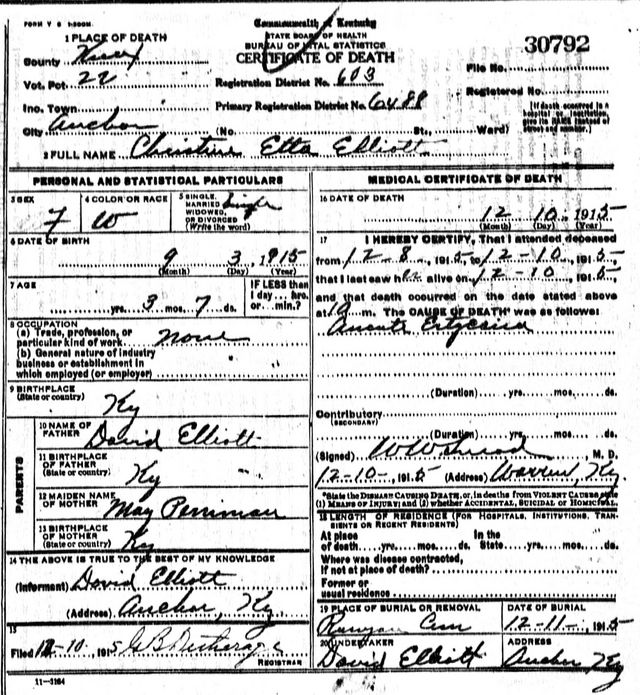 FORM V S 1-200M.
Commonwealth of Kentucky
STATE BOARD OF HEALTH
BUREAU OF VITAL STATISTICS
CERTIFICATE OF DEATH
1 PLACE OF DEATH
County Knox
Vot. Pct 22
Ino. Town
City Anchor (No. St., Ward)
Registration District No. 603
Primary Registration District No. 6488
30792
File No.
Registered No.
[If death occurred in a hospital or institution, give its NAME instead of street and number.]
2 FULL NAME Christine Etta Elliott
PERSONAL AND STATISTICAL PARTICULARS
3 SEX 7
4 COLOR OR RACE W
5 SINGLE, MARRIED, WIDOWED, OR DIVORCED (Write the word) Single
6 DATE OF BIRTH
9 3 1915
(Month) (Day) (Year)
7 AGE
yrs. 3 mos. 7 ds.
IF LESS than 1 day... hrs. or... min.?
8 OCCUPATION
(a) Trade, profession, or particular kind of work none
(b) General nature of industry business or establishment in which employed (or employer)
9 BIRTHPLACE (State or country) Ky
PARENTS
10 NAME OF FATHER David Elliott
11 BIRTHPLACE OF FATHER (State or country) Ky
12 MAIDEN NAME OF MOTHER May Perriman
13 BIRTHPLACE OF MOTHER (State or country) Ky
14 THE ABOVE IS TRUE TO THE BEST OF MY KNOWLEDGE
(Informant) David Elliott
(Address) Anchor, Ky
15
Filed 12-10, 1915
REGISTRAR
11-3184
MEDICAL CERTIFICATE OF DEATH
16 DATE OF DEATH
12 10, 1915
(Month) (Day) (Year)
17 I HEREBY CERTIFY, That I attended deceased
from 12-8, 1915 to 12-10, 1915
that I last saw her alive on 12-10, 1915
and that death occurred on the date stated above
at m. The CAUSE OF DEATH* was as follows:
(Duration) yrs. mos. ds.
Contributory
(SECONDARY)
(Duration) yrs. mos. ds.
(Signed) M. D.
12-10, 1915 (Address) Warren, Ky.
*State the DISEASE CAUSING DEATH, or, in deaths from VIOLENT CAUSES state
(1) MEANS OF INJURY; and (2) whether ACCIDENTAL, SUICIDAL or HOMICIDAL.
18 LENGTH OF RESIDENCE (FOR HOSPITALS, INSTITUTIONS, TRANSIENTS OR RECENT RESIDENTS)
At place of death yrs. mos. ds. In the State yrs. mos. ds.
Where was disease contracted,
if not at place of death?
Former or
usual residence
19 PLACE OF BURIAL OR REMOVAL
DATE OF BURIAL
12-11-, 1915
20 UNDERTAKER
David Elliott
ADDRESS
Anchor Ky